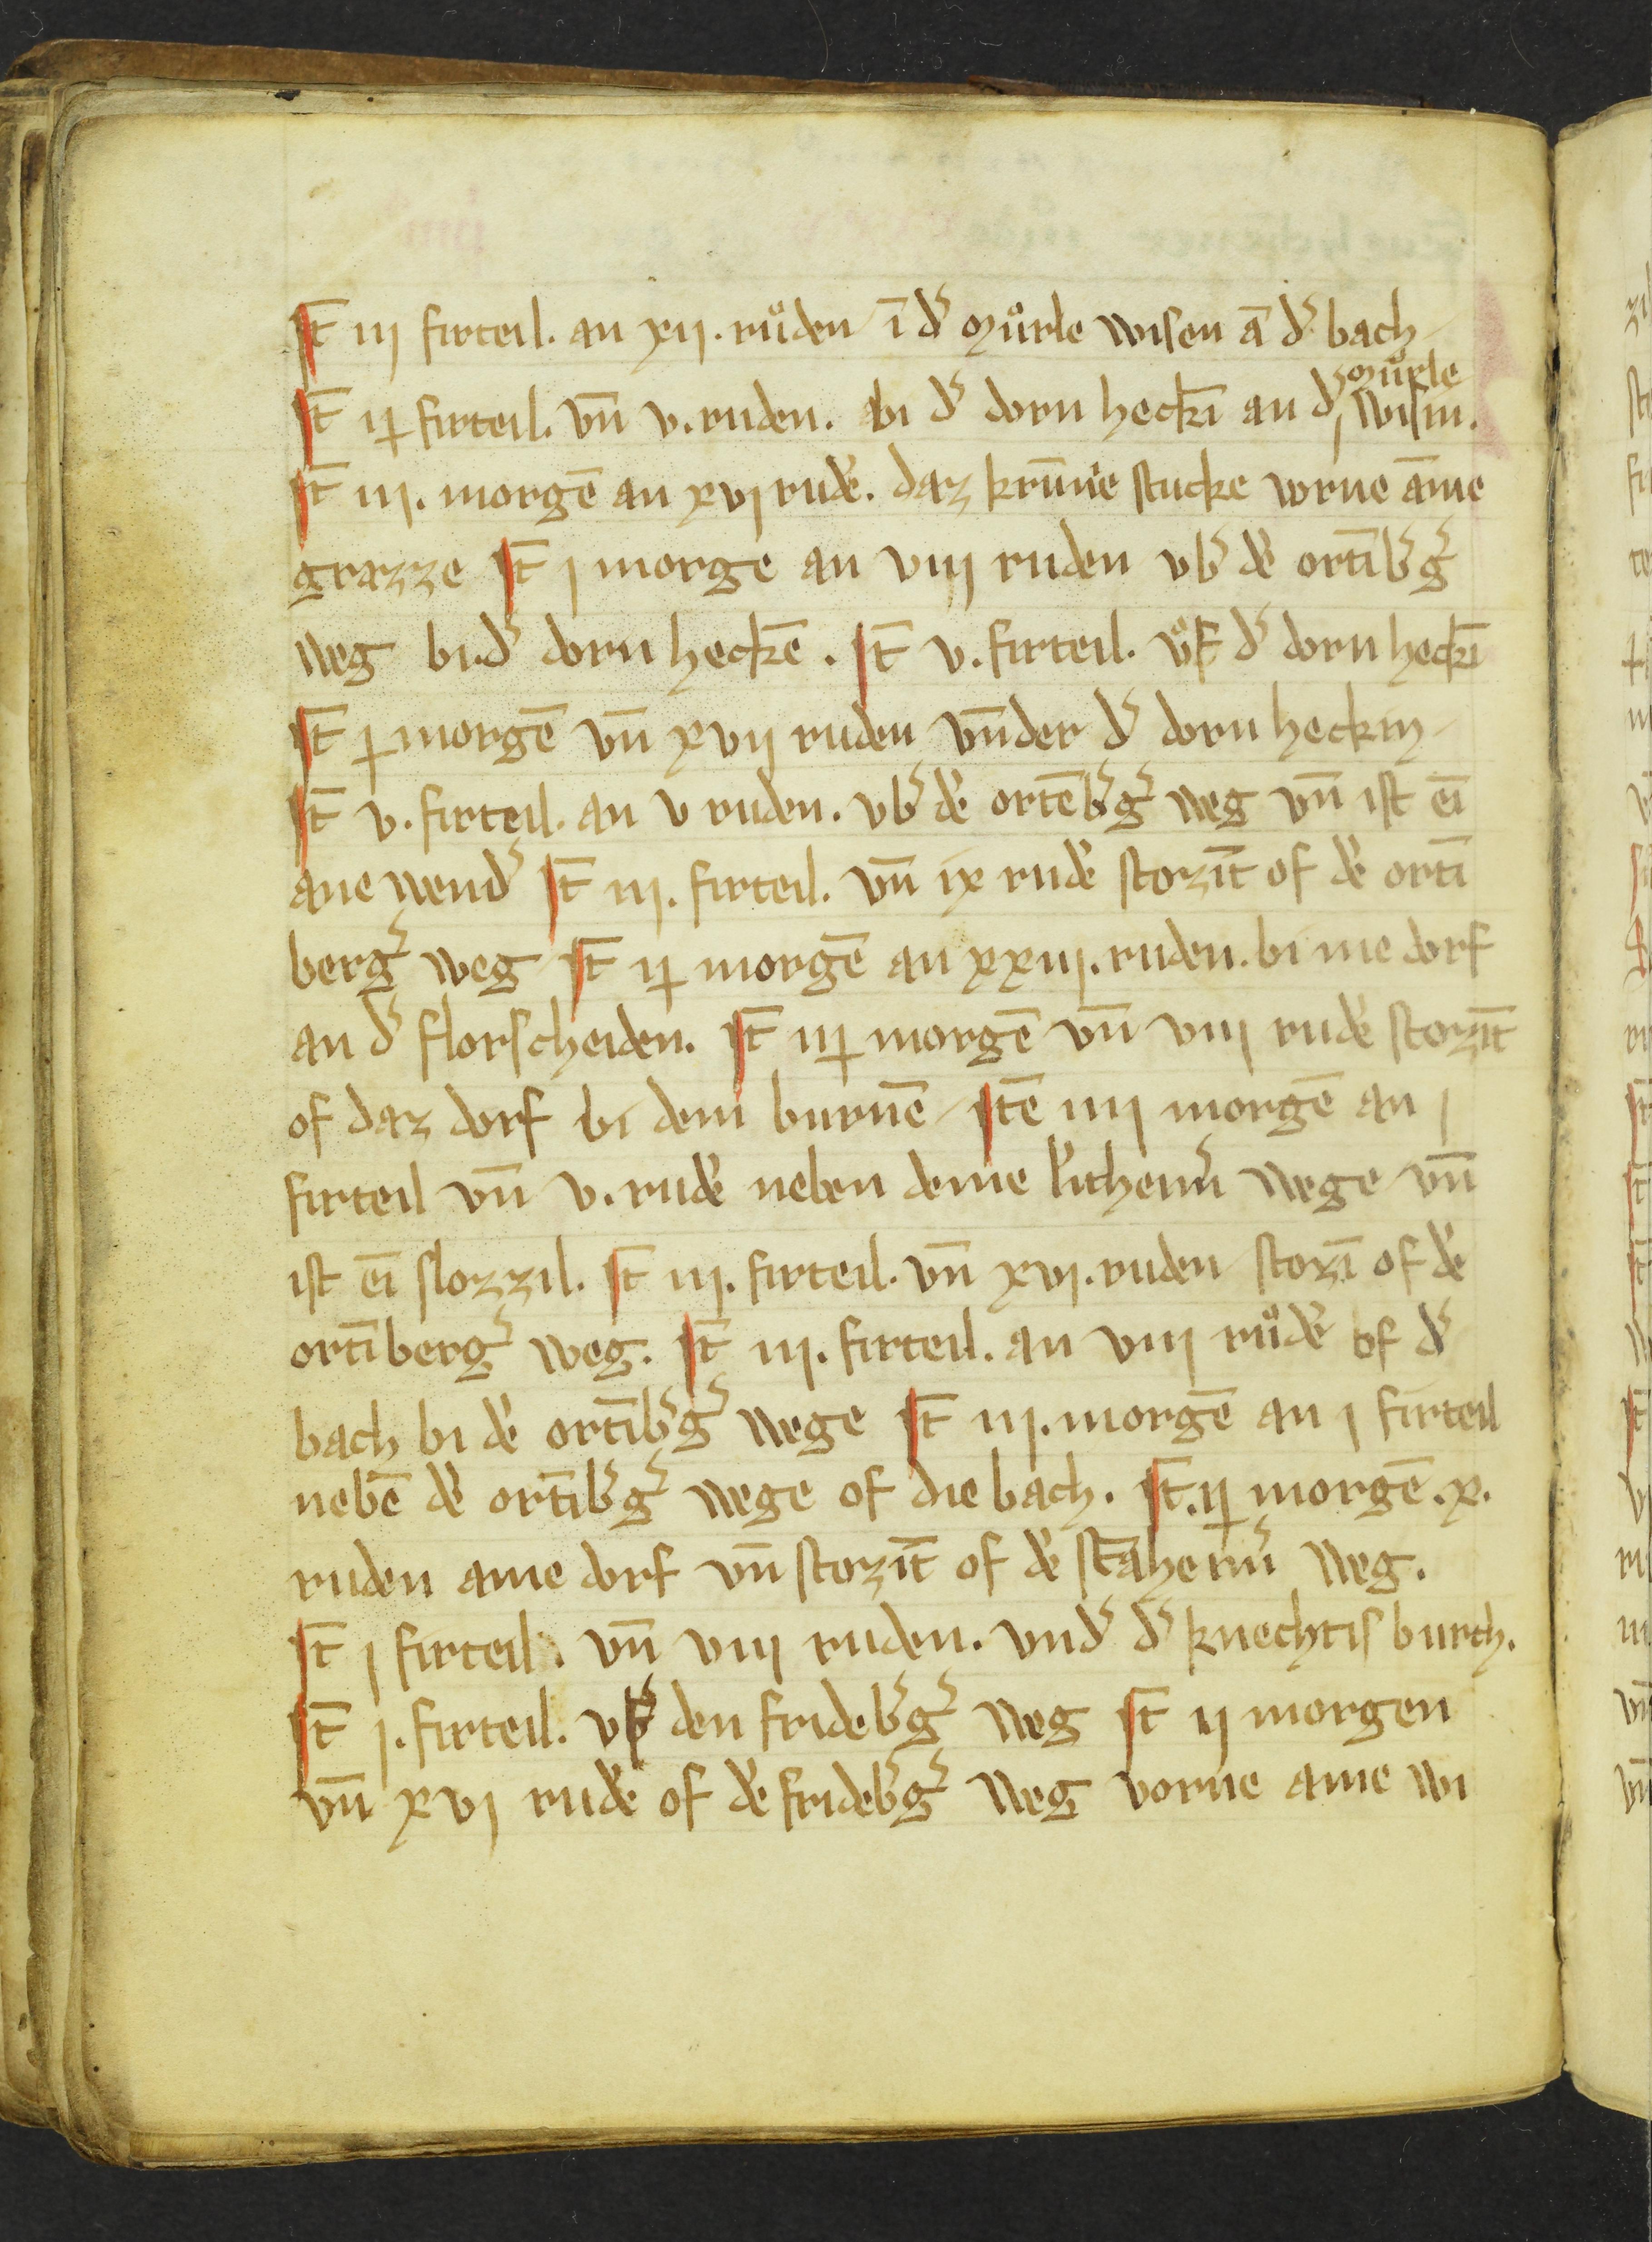 It̄ iij firteil. an xij. ruͦden ī dˢ muͦrle wisen ā dˢ bach
muͦrle
It̄ ij firteil. vn̄ v. ruden. bi dˢ dorn heckī an dˢ wisin.
It̄ iij. morgē an xvj rudē. daz krūme stucke vorne āme
grazze It̄ j morge an viij ruden vbˢ dē ortībˢgˢ
weg bi dˢ dorn heckē. It̄ v. firteil. vͦf dˢ dorn heckī
It̄ j morgē vn̄ xvij ruden vn̄der dˢ dorn heckin
It̄ v. firteil. an v ruden. vbˢ dē ortēbˢgˢ weg vn̄ ist eī
ane wendˢ It̄ iij. firteil. vn̄ ix rudē stozīt of dē ortī
bergˢ weg It̄ ij morgē an xxiij. ruden. bi me dorf
an dˢ florscheiden. It̄ iij morgē vn̄ viij rudē stozīt
of daz dorf bi dem burnē Itē iiij morgē an j
firteil vn̄ v. rudē neben deme litheimˢ wege vn̄
ist eī slozzil. It̄ iij. firteil. vn̄ xvj. ruden stozī of dē
ortībergˢ weg. It̄ iij. firteil. an viij ruͦdē of dˢ
bach bi dē ortībˢgˢ wege It̄ iij. morgē an j firteil
nebē dē ortībˢgˢ wege of die bach. It̄. ij morgē. x.
ruden ame dorf vn̄ stozīt of dē stāheimˢ weg.
It̄ j firteil. vn̄ viij ruden. vndˢ dˢ knechtis burch.
It̄ j. firteil. vbˢ den fridebˢgˢ weg It̄ ij morgen
vn̄ xvj rudē of dē fridebˢgˢ weg vorne ame wi